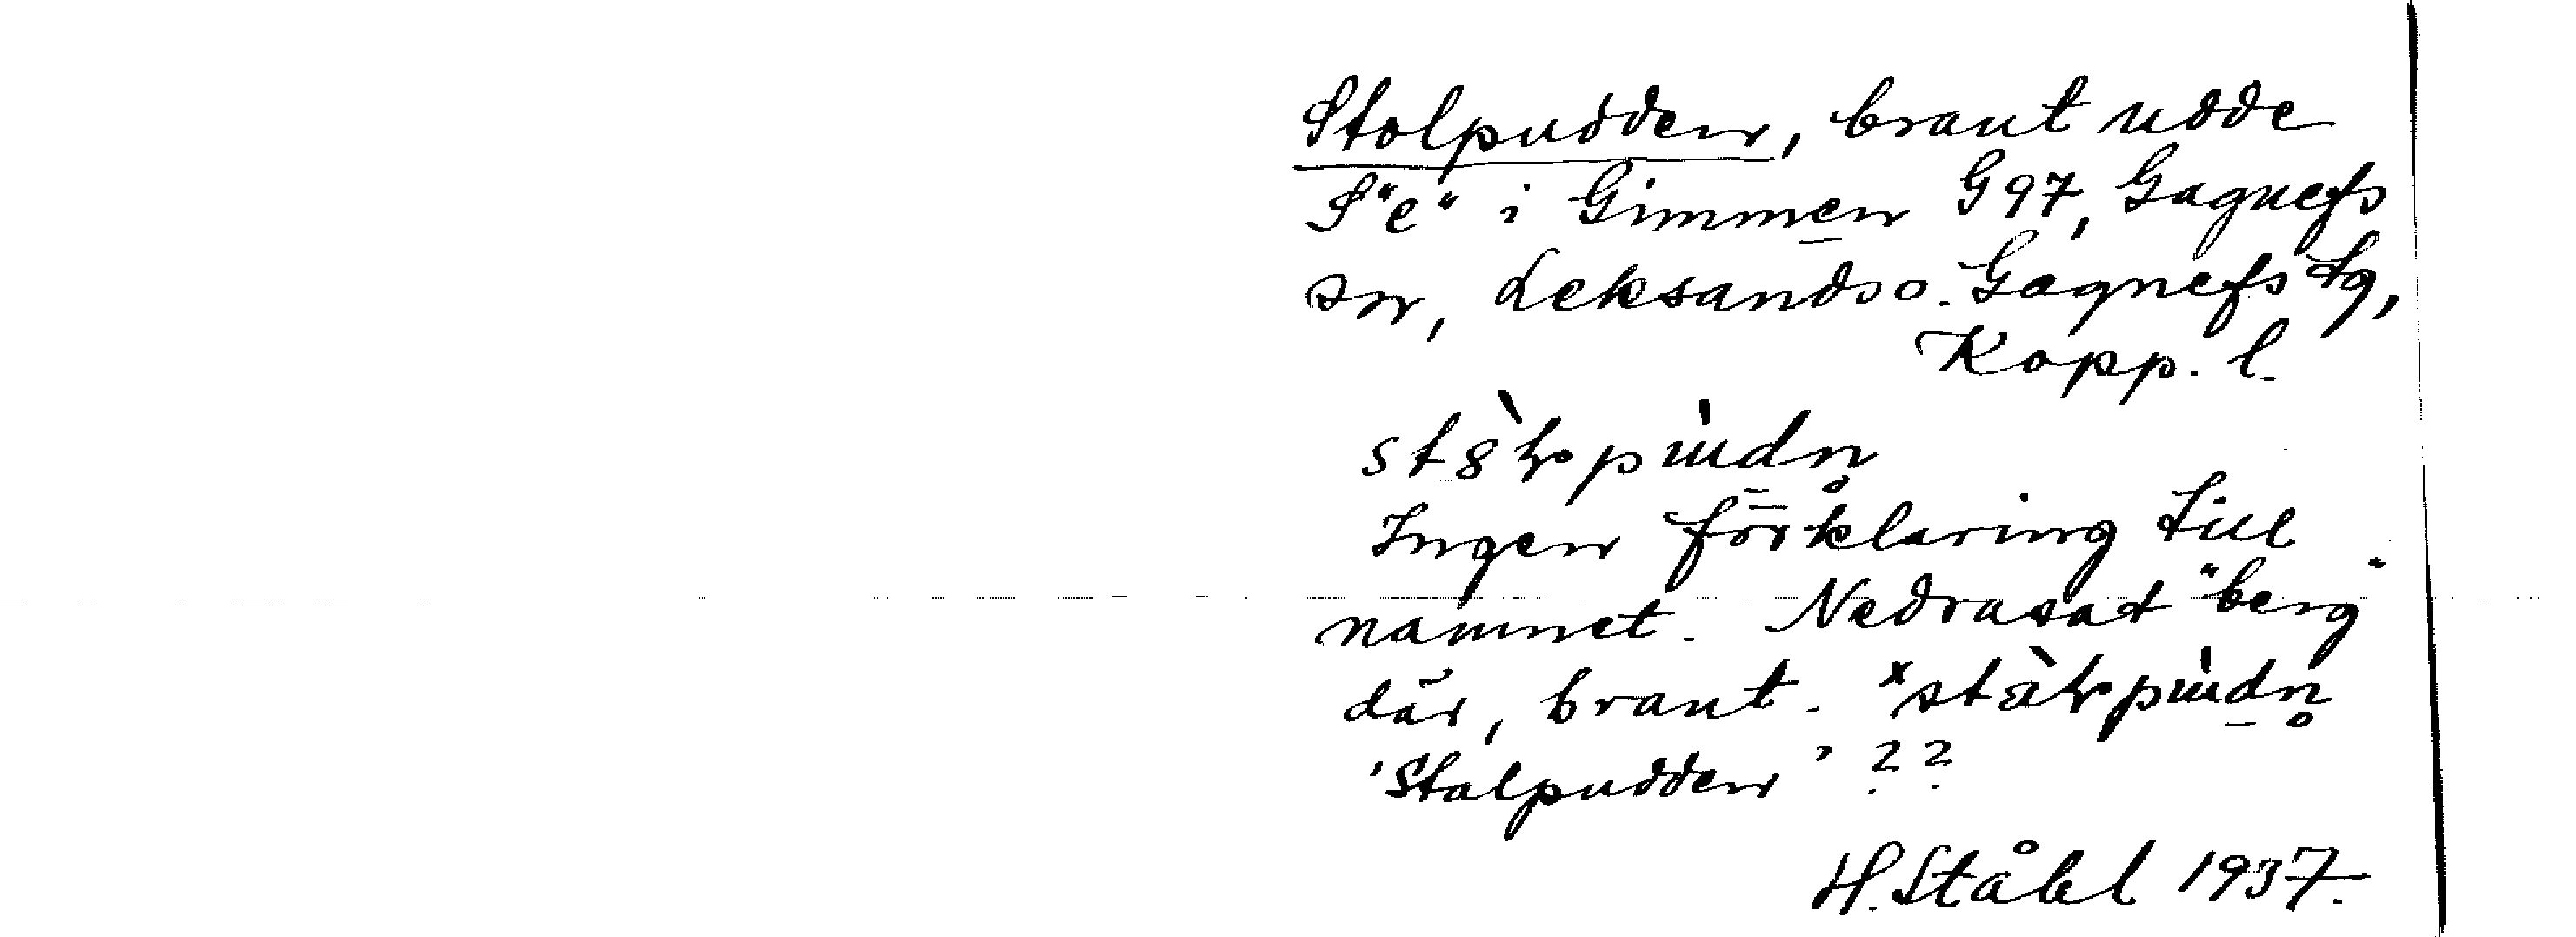 Stolpudden, brant udde
S "e" i Gimmen G97, Gagnefs
sn, Leksands o. Gagnefs tg,
Kopp. l.
Ingen förklaring till
namnet. Nedrasat "berg"
där, brant.
'Stalpudden' ??
H. Ståhl 1937.